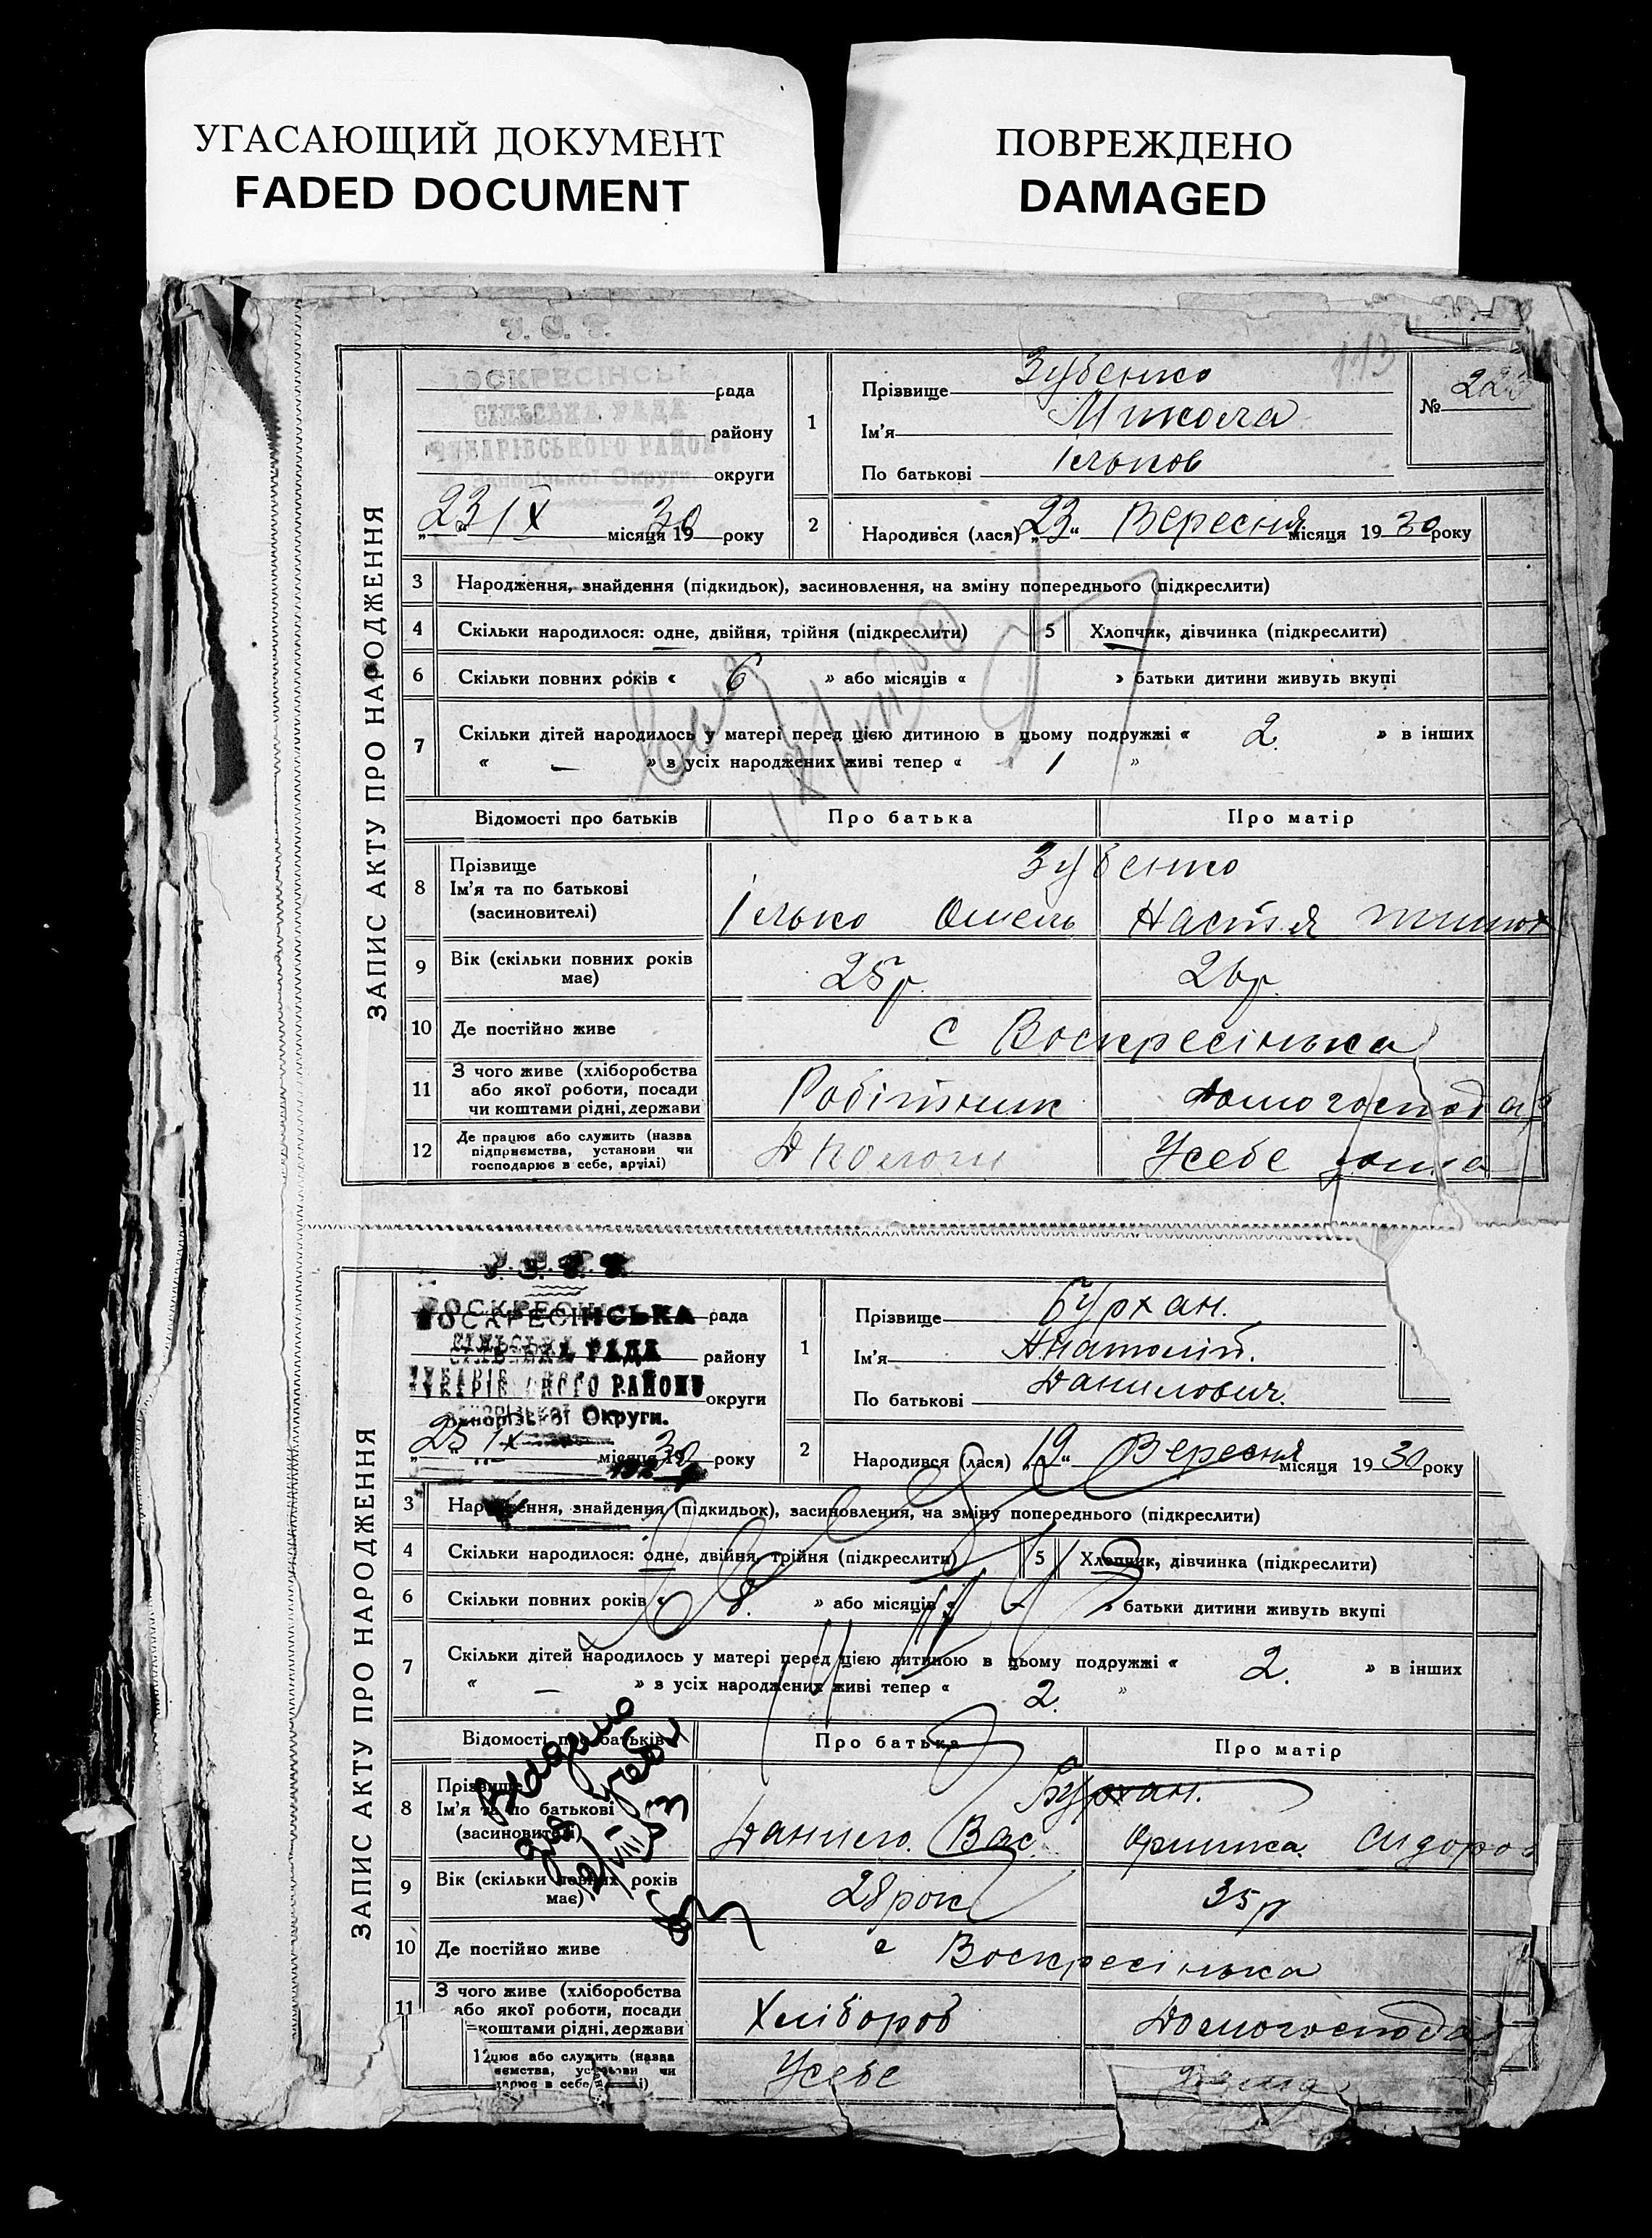 УГАСАЮЩИЙ ДОКУМЕНТ
FADED DOCUMENT
ПОВРЕЖДЕНО
DAMAGED
У. С. Р. Р.
113
ЗАПИС АКТУ ПРО НАРОДЖЕННЯ
ВОСКРЕСІНСЬКА рада
СІЛЬСЬКА РАДА
району
РАЙОНУ
Запорізької Округи. округи
„23 IX місяця 1930 року
1 Прізвище Зубенко
Ім'я Микола
По батькові Ільков
№
2 Народився (лася) „23“ Вересня місяця 1930 року
3 Народження, знайдення (підкидьок), засиновлення, на зміну попереднього (підкреслити)
4 Скільки народилося: одне, двійня, трійня (підкреслити) 5 Хлопчик, дівчинка (підкреслити)
6 Скільки повних років « 6 » або місяців « » батьки дитини живуть вкупі
7 Скільки дітей народилось у матері перед цією дитиною в цьому подружжі « 2 » в інших
« — » в усіх народжених живі тепер « 1 »
Відомості про батьків Про батька Про матір
8 Прізвище
Ім'я та по батькові
(засиновителі)
Зубенко
Ілько Омель Настя Тимох
9 Вік (скільки повних років
має)
25 р. 26 р.
10 Де постійно живе с Воскресінька
11 З чого живе (хліборобства
або якої роботи, посади
чи коштами рідні, держави
Робітник Домогосподар
12 Де працює або служить (назва
підприємства, установи чи
господарює в себе, артілі)
Усебе дома
У. С. Р. Р.
ЗАПИС АКТУ ПРО НАРОДЖЕННЯ
ВОСКРЕСІНСЬКА рада
СІЛЬСЬКА РАДА району
РАЙОНУ округи
Запорізької Округи.
„25 IX місяця 1930 року
1 Прізвище Бурхан.
Ім'я Анатолій.
По батькові Данилович.
2 Народився (лася) „19“ Вересня місяця 1930 року
3 Народження, знайдення (підкидьок), засиновлення, на зміну попереднього (підкреслити)
4 Скільки народилося: одне, двійня, трійня (підкреслити) 5 Хлопчик, дівчинка (підкреслити)
6 Скільки повних років « 8. » або місяців « » батьки дитини живуть вкупі
7 Скільки дітей народилось у матері перед цією дитиною в цьому подружжі « 2. » в інших
« — » в усіх народжених живі тепер « 2. »
Відомості про батьків Про батька Про матір
Видано
для
8 Прізвище
Ім'я та по батькові
(засиновителі)
Бурхан.
Данило. Вас. Оришка Сидоров
9 Вік (скільки повних років
має)
28 рок 35 р
10 Де постійно живе с Воскресінька
11 З чого живе (хліборобства
або якої роботи, посади
коштами рідні, держави
Хлібороб Домогоспода
12 цює або служить (назва
ємства, установи чи
дарює в себе
Усебе